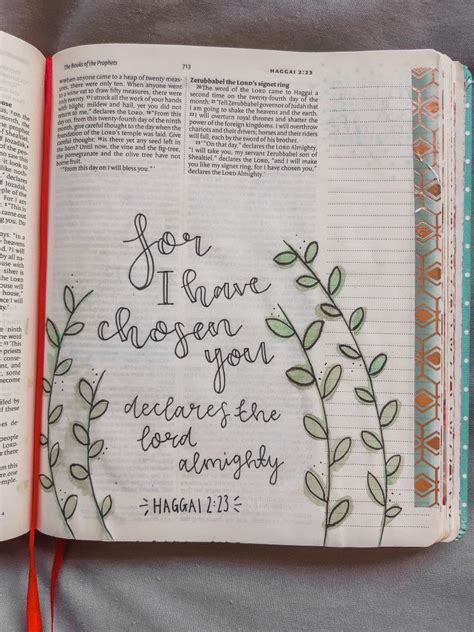 The Books of the Prophets
713
HAGGAI 2:23
when anyone came to a heap of twenty meas-
ures, there were only ten. When anyone went
to a wine vat to draw fifty measures, there were
only twenty. I struck all the work of your hands
with blight, mildew and hail, yet you did not
return to me,' declares the LORD. "From this
day on, from this twenty-fourth day of the ninth
month, give careful thought to the day when the
foundation of the LORD's temple was laid. Give
careful thought: Is there yet any seed left in
the barn? Until now, the vine and the fig-tree,
the pomegranate and the olive tree have not
borne fruit.
"'From this day on I will bless you.'"
Zerubbabel the LORD's signet ring
20The word of the LORD came to Haggai a
second time on the twenty-fourth day of the
month: 21"Tell Zerubbabel governor of Judah that
I am going to shake the heavens and the earth.
22I will overturn royal thrones and shatter the
power of the foreign kingdoms. I will overthrow
chariots and their drivers; horses and their riders
will fall, each by the sword of his brother.
23"'On that day,' declares the LORD Almighty,
'I will take you, my servant Zerubbabel son of
Shealtiel,' declares the LORD, 'and I will make
you like my signet ring, for I have chosen you,'
declares the LORD Almighty."
for
I have
chosen
you
declares the
lord
almighty
HAGGAI 2:23